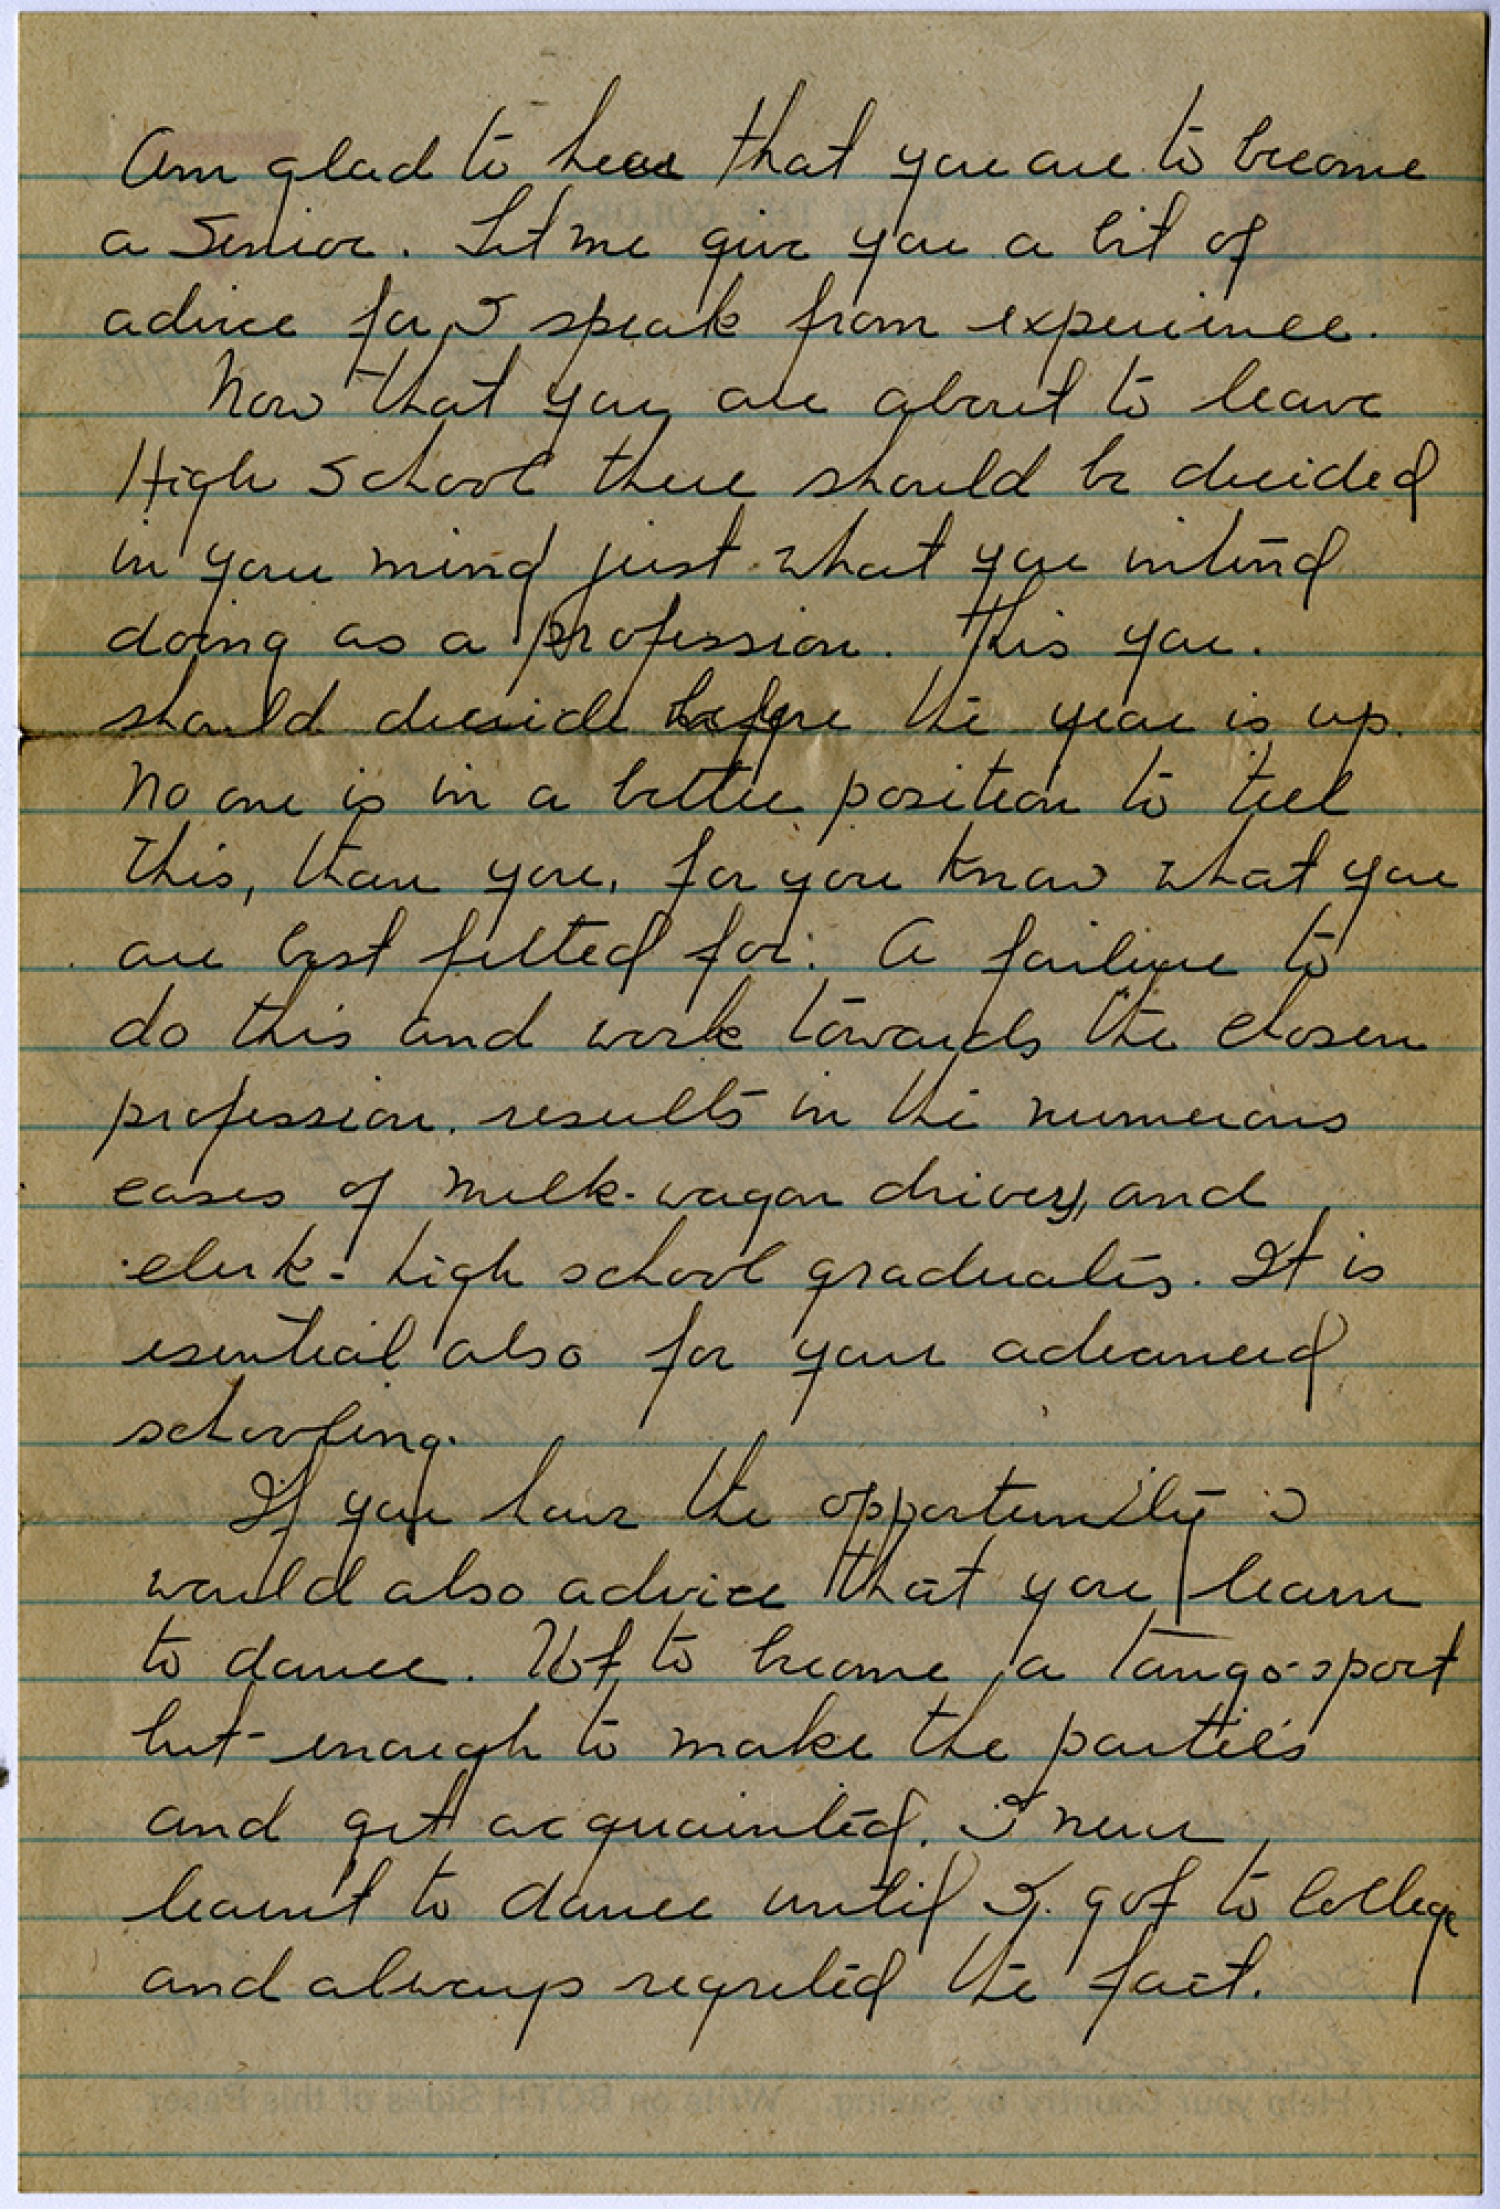 Am glad to hear that you are to become
a Senior. Let me give you a bit of
advice for I speak from experience.
Now that you are about to leave
High School there should be decided
in your mind just what you intend
doing as a profession. This you.
should decide before the year is up.
No one is in a better position to tell
this, than you, for you know what you
are best fitted for. A failure to
do this and work towards the chosen
profession. results in the numerous
cases of milk-wagon drivers, and
clerk-high school graduates. It is
esential also for your advanced
schooling.
If you have the opportunity I
would also advice that you learn
to dance. Not to become a tango-sport
but enough to make the parties
and get acquainted. I never
learnt to dance until I got to College
and always regreted the fact.
WITH THE COLORS
Help your Country by Saving. Write on BOTH Sides of this Paper.